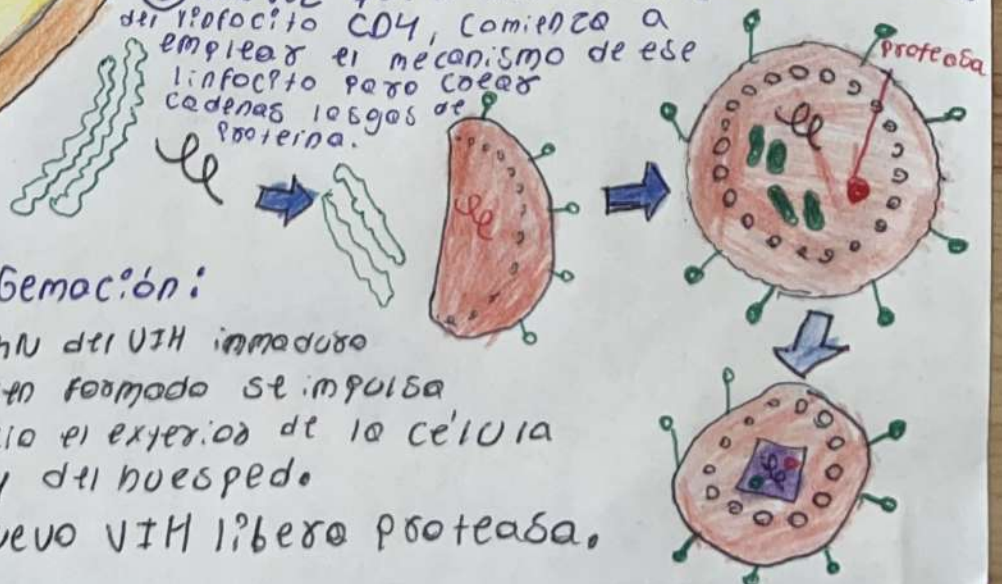 del linfocito CD4, comienza a
emplear el mecanismo de ese
linfocito para crear
cadenas largas de
proteina.
proteasa
Gemación:
del VIH inmaduro
formado se impulsa
el exterior de la célula
del huesped.
VIH libera proteasa.